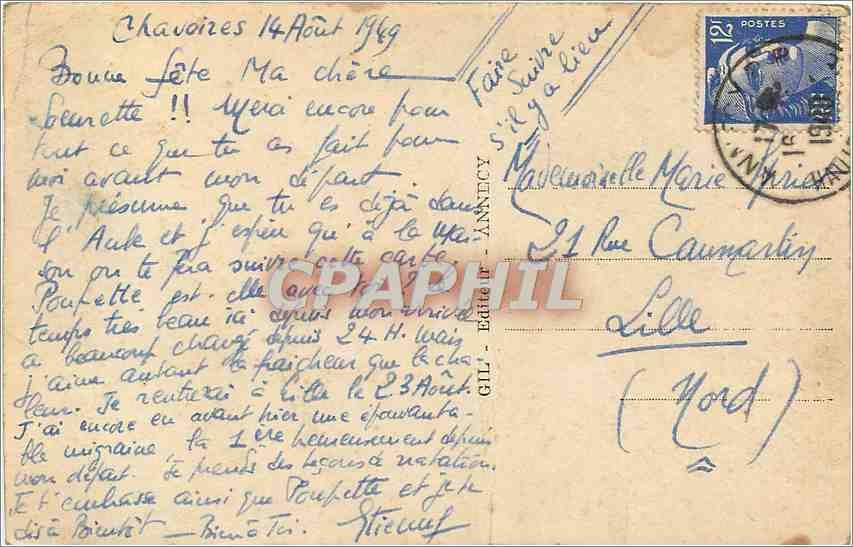 Chavoires 14 Août 1949
Bonne fête Ma chère
Soeurette !! Merci encore pour
tout ce que tu as fait pour
moi avant mon départ.
Je présume que tu es déjà dans
l'Aube et j'espère qu'à la Mai-
son on te fera suivre cette carte.
Poupette est-elle avec toi ? Le
temps très beau ici depuis mon arrivée
a beaucoup changé depuis 24 H. Mais
j'aime autant la fraîcheur que la cha-
leur. Je rentrerai à Lille le 23 Août.
J'ai encore eu avant hier une épouvanta-
ble migraine, la 1ère heureusement depuis
mon départ. Je prends des leçons de natation.
Je t'embrasse ainsi que Poupette et je te
dis à Bientôt - Bien à Toi. Etienne
Faire
Suivre
s'il y a lieu
GIL' - Editeur - ANNECY
POSTES
12F
1949
Mademoiselle Marie
21 Rue Caumartin
Lille
(Nord)
CPAPHIL